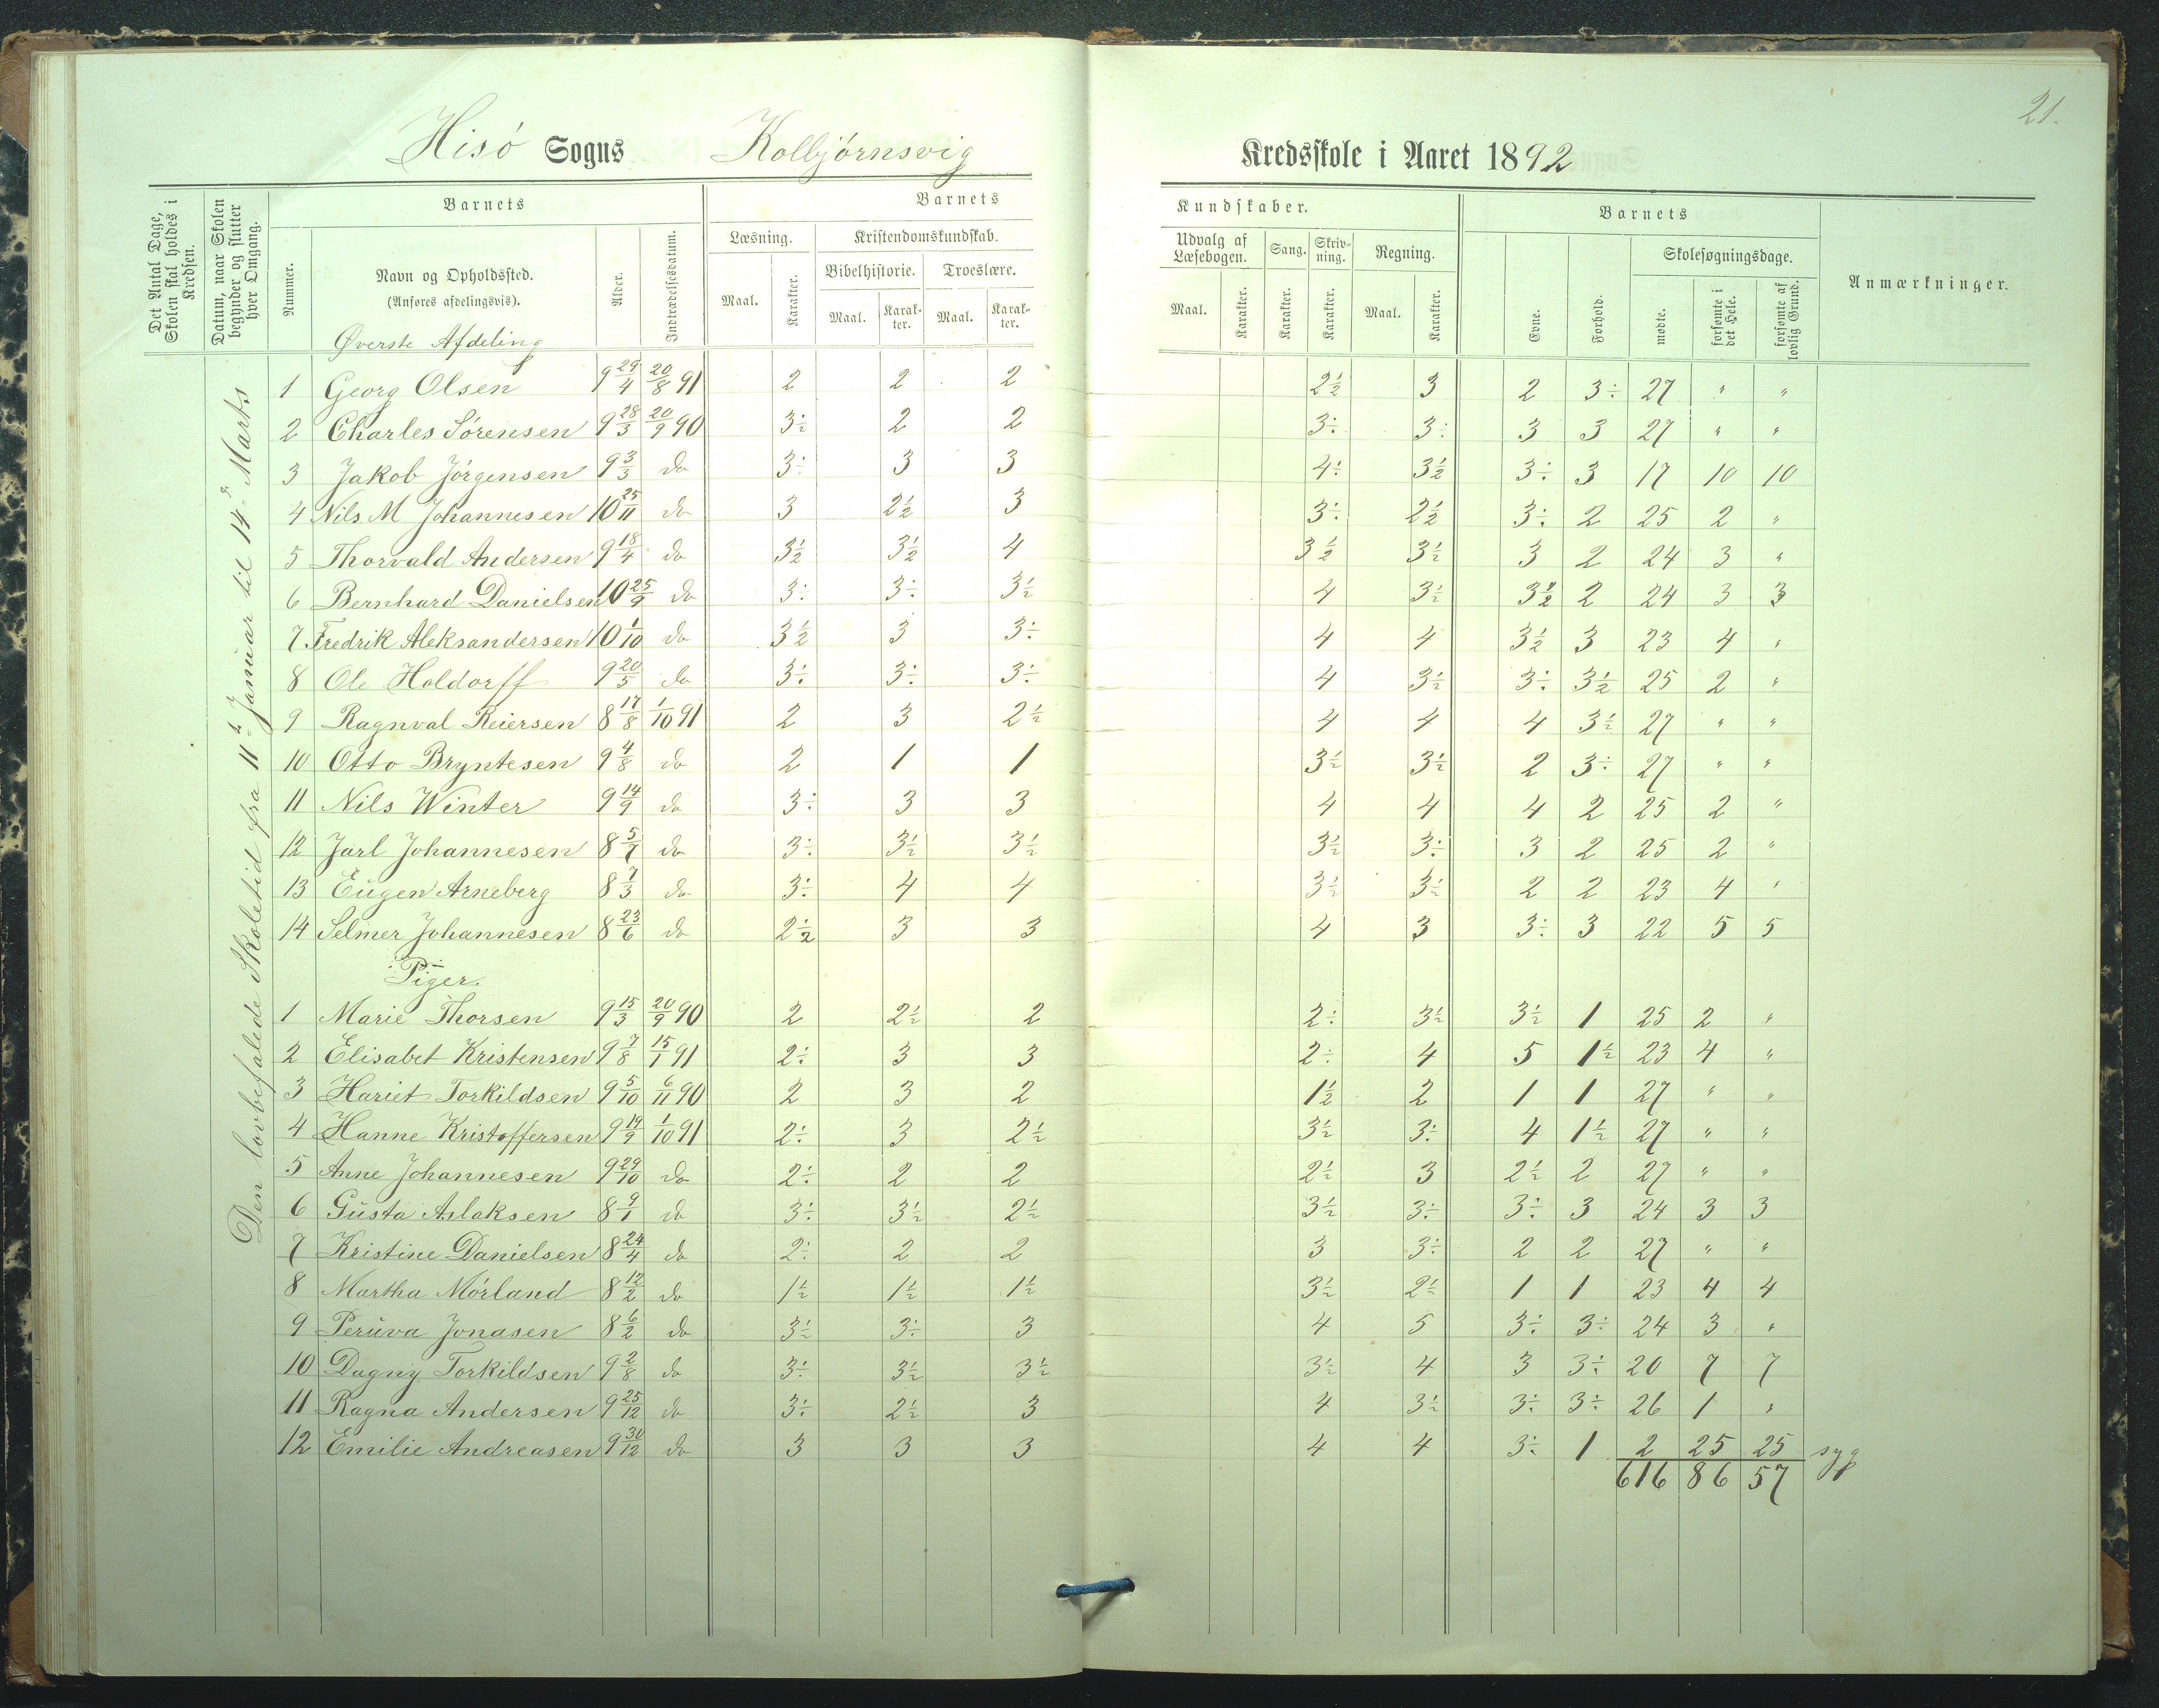 21.
Hisö Sogns Kolbjörnsvig Kredsskole i Aaret 1892
Det Antal Dage, Skolen skal holdes i Kredsen.
Datum, naar Skolen begynder og slutter hver Omgang.
Barnets
Nummer.
Navn og Opholdssted.
(Anføres afdelingsvis).
Alder.
Indtrædelsesdatum.
Barnets Kundskaber.
Læsning. Kristendomskundskab. Udvalg af Læsebogen. Sang. Skrivning. Regning.
Bibelhistorie. Troeslære.
Maal. Karakter. Maal. Karakter. Maal. Karakter. Maal. Karakter. Karakter. Karakter. Maal. Karakter.
Barnets
Evne. Forhold. Skolesøgningsdage.
mødte. forsømte i det Hele. forsømte af lovlig Grund.
Anmærkninger.
Den lovbefalede Skoletid fra 11te Januar til 14de Marts
Øverste Afdeling
1 Georg Olsen 9 29/4 20/8 91 2 2 2 2½ 3 2 3÷ 27 " "
2 Charles Sörensen 9 28/3 20/9 90 3½ 2 2 3÷ 3÷ 3 3 27 " "
3 Jakob Jörgensen 9 3/3 do 3÷ 3 3 4÷ 3½ 3÷ 3 17 10 10
4 Nils M Johannesen 10 25/11 do 3 2½ 3 3÷ 2½ 3÷ 2 25 2 "
5 Thorvald Andersen 9 18/4 do 3½ 3½ 4 3½ 3½ 3 2 24 3 "
6 Bernhard Danielsen 10 25/9 do 3÷ 3÷ 3½ 4 3½ 3½ 2 24 3 3
7 Fredrik Aleksandersen 10 1/10 do 3½ 3 3÷ 4 4 3½ 3 23 4 "
8 Ole Holdorff 9 20/5 do 3÷ 3÷ 3÷ 4 3½ 3÷ 3½ 25 2 "
9 Ragnval Reiersen 8 17/8 1/10 91 2 3 2½ 4 4 4 3½ 27 " "
10 Otto Bryntesen 9 4/8 do 2 1 1 3½ 3½ 2 3÷ 27 " "
11 Nils Winter 9 14/9 do 3÷ 3 3 4 4 4 2 25 2 "
12 Jarl Johannesen 8 5/7 do 3÷ 3½ 3½ 3½ 3÷ 3 2 25 2 "
13 Eugen Arneberg 8 7/3 do 3÷ 4 4 3½ 3½ 2 2 23 4 "
14 Selmer Johannesen 8 23/6 do 2½ 3 3 4 3 3÷ 3 22 5 5
Piger.
1 Marie Thorsen 9 15/3 20/9 90 2 2½ 2 2÷ 3½ 3½ 1 25 2 "
2 Elisabet Kristensen 9 7/8 15/1 91 2÷ 3 3 2÷ 4 5 1½ 23 4 "
3 Hariet Torkildsen 9 5/10 6/11 90 2 3 2 1½ 2 1 1 27 " "
4 Hanne Kristoffersen 9 19/9 1/10 91 2÷ 3 2½ 3½ 3÷ 4 1½ 27 " "
5 Anne Johannesen 9 29/10 do 2÷ 2 2 2½ 3 2½ 2 27 " "
6 Gusta Aslaksen 8 9/1 do 3÷ 3½ 2½ 3½ 3÷ 3÷ 3 24 3 3
7 Kristine Danielsen 8 24/4 do 2÷ 2 2 3 3÷ 2 2 27 " "
8 Martha Mörland 8 12/2 do 1½ 1½ 1½ 3½ 2½ 1 1 23 4 4
9 Peruva Jonasen 8 6/2 do 3½ 3÷ 3 4 5 3÷ 3÷ 24 3 "
10 Dagny Torkildsen 9 2/8 do 3÷ 3½ 3½ 3½ 4 3 3÷ 20 7 7
11 Ragna Andersen 9 25/12 do 3÷ 2½ 3 4 3½ 3÷ 3÷ 26 1 "
12 Emilie Andreasen 9 30/12 do 3 3 3 4 4 3÷ 1 2 25 25 syg
616 86 57